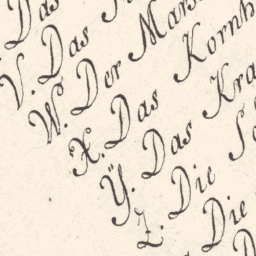 Das
V. Das
W. Der Mars
X. Das Kornh
Ÿ. Das Kra
Z. Die
Die